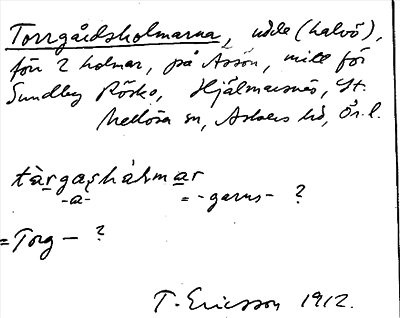 Torrgårdsholmarna, udde (halvö),
förr 2 holmar, på Assön, mitt för
Sundby Hjälmarsnäs, St.
Mellösa sn, Askers hd, Ör. l.
tàrgaşhål̨mar
-a- = -garns- ?
= Torg- ?
T. Ericsson 1912.